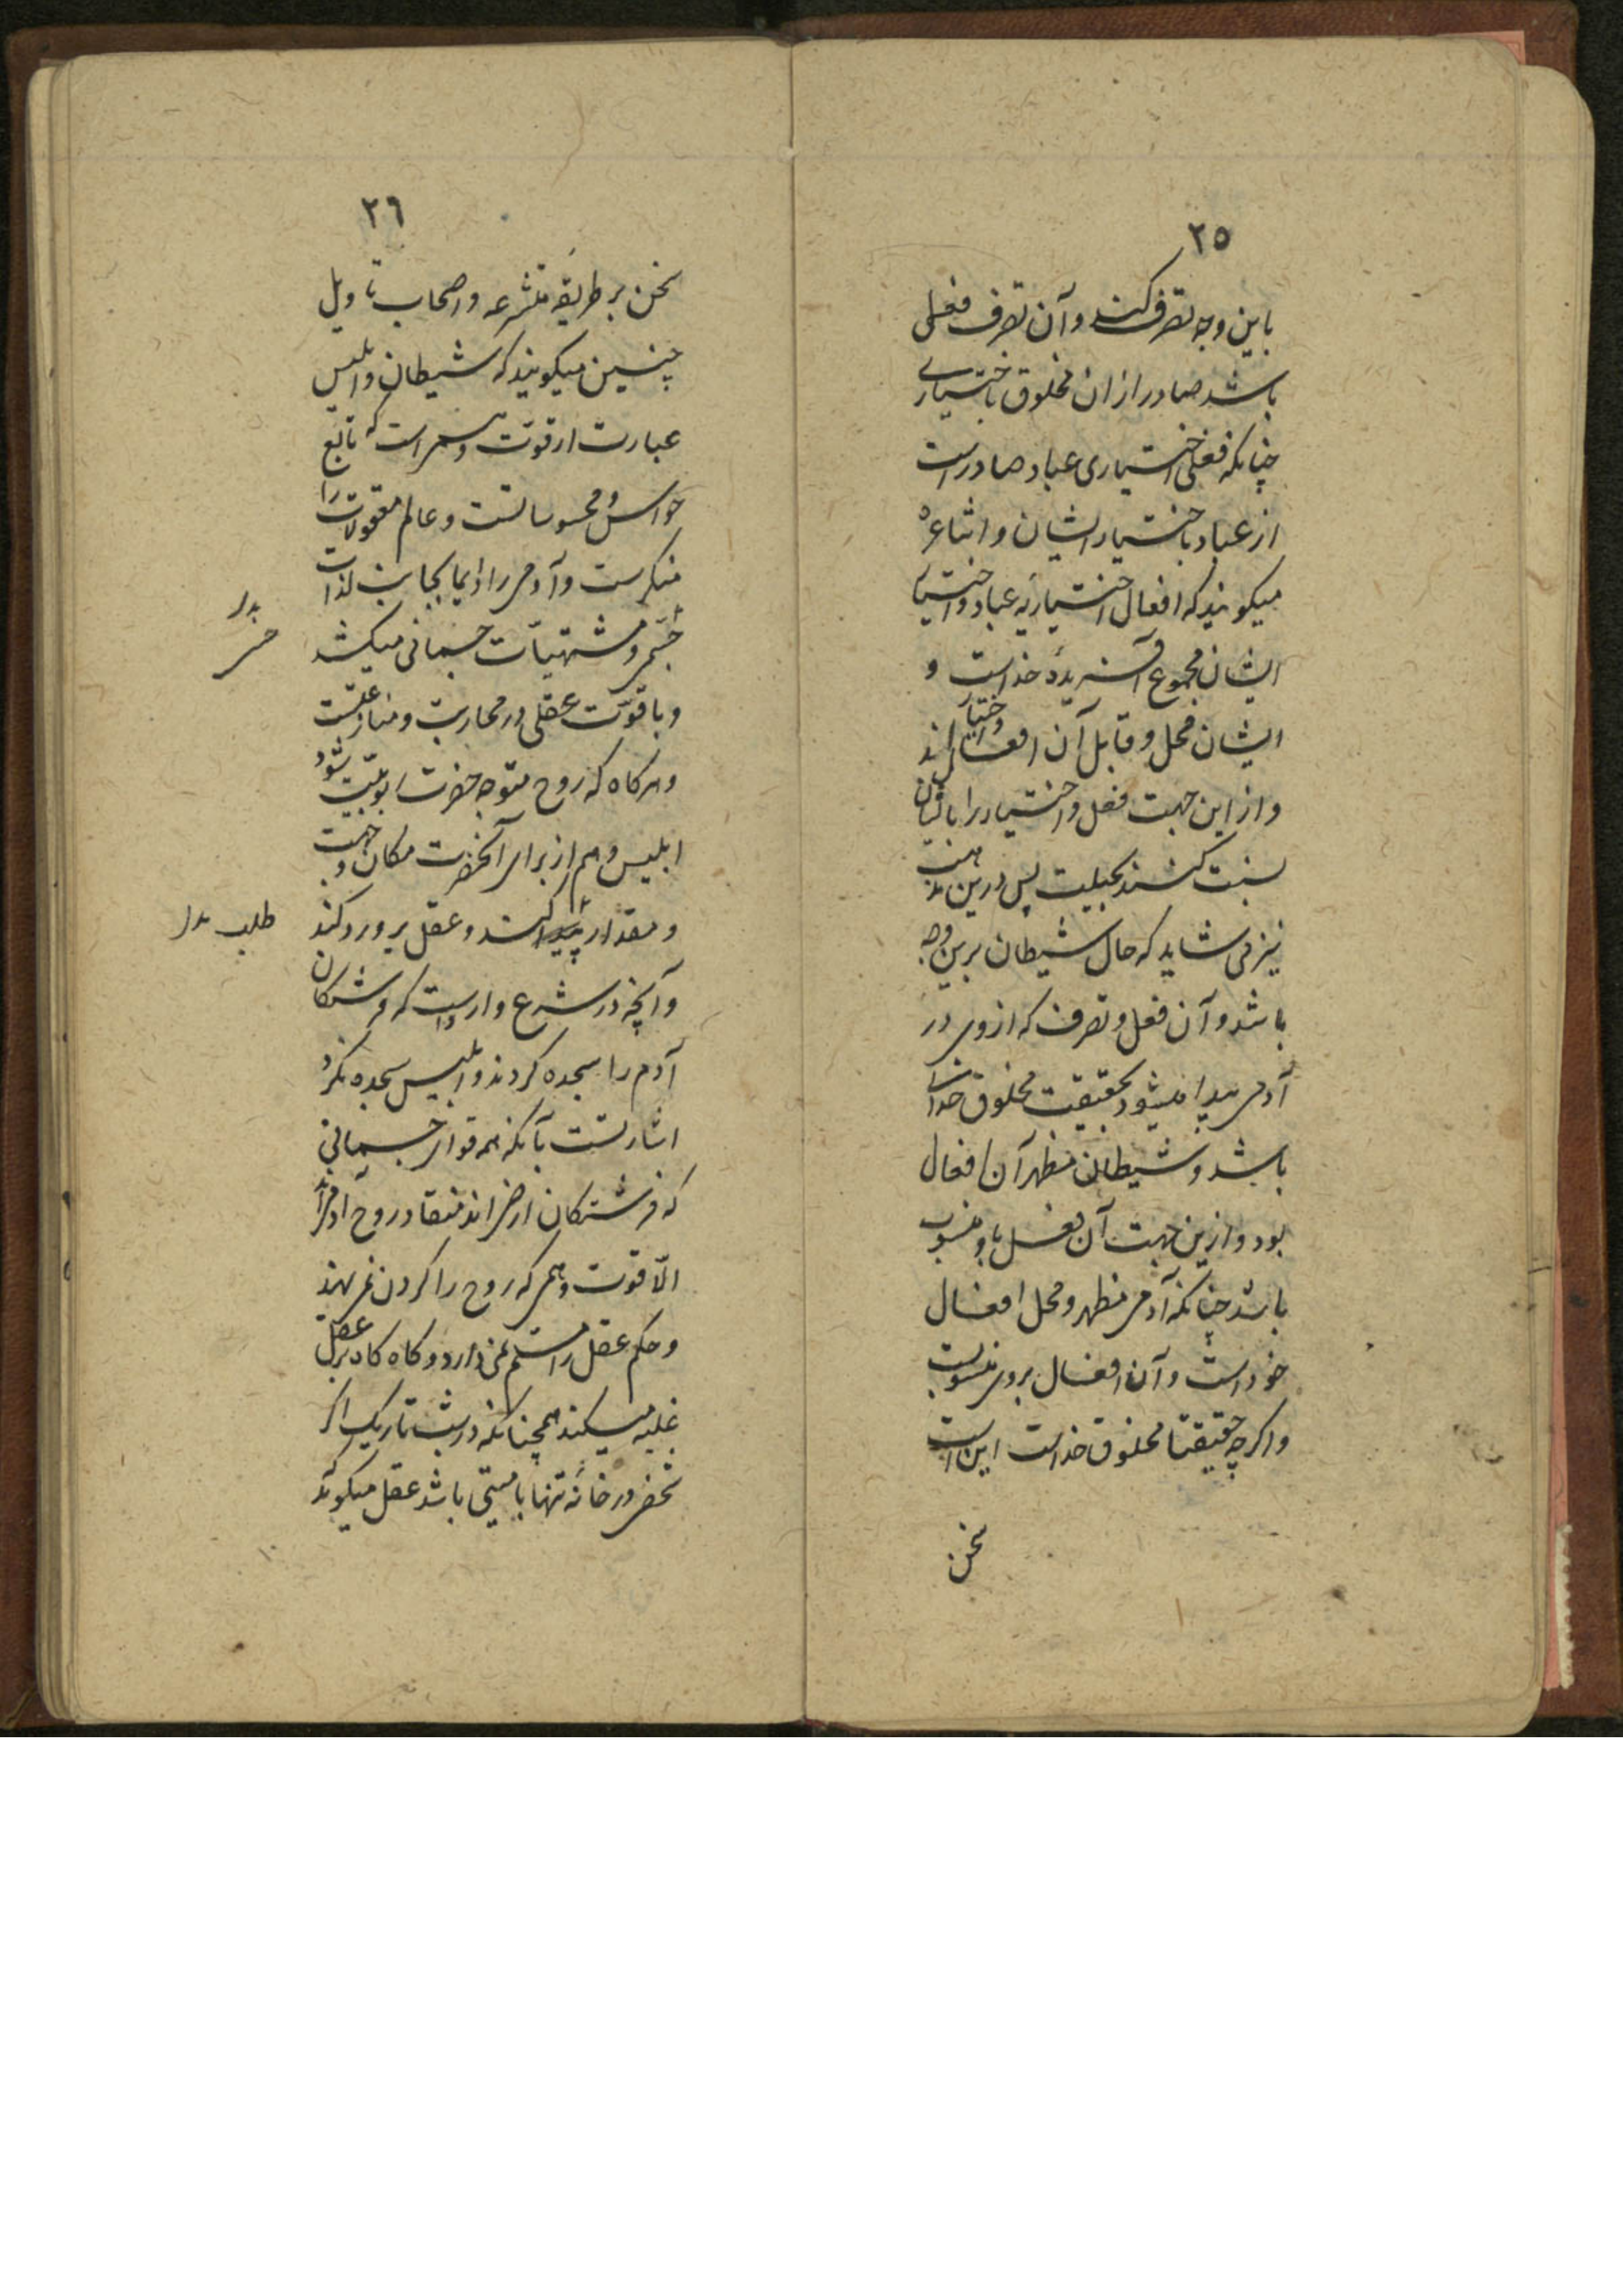 ٢٥
باین وجه تصرف کند و آن تصرف فعلی
باشد صادر ازان مخلوق باختیاری
چنانکه فعل اختیاری عباد صادر است
از عباد باختیار ایشان و اشاعره
میکویند که افعال اختیاریه عباد و اختیار
ایشان مجموع آفریدهٔ خداست و
ایشان محل و قابل آن افعال و اختیار اند
و از این جهت فعل و اختیار را بایشان
نسبت کنند بجبلیت پس درین مذهب
نیز می شاید که حال شیطان برین وجه
باشد و آن فعل و تصرف که از وی در
آدمی پیدا میشود بحقیقت مخلوق خدای
باشد و شیطان مظهر آن افعال
بود و ازین جهت آن فعل باو منسوب
باشد چنانکه آدمی مظهر و محل افعال
خود است و آن افعال بروی منسوب
و اکرچه حقیقتا مخلوق خداست این است
سخن
٢٦
سخن بر طریقهٔ متشرعه و اصحاب تاویل
چنین میکویند که شیطان و ابلیس
عبارت از قوت وهمی است که تابع
حواس و محسوساتست و عالم معقولات را
منکرست و آدمی را دایما بجانب لذات
حسی و مشتهیات جسمانی میکشد
و با قوت عقلی در محاربت و منازعتست
و هرکاه که روح متوجه حضرت ربوبیت شود
ابلیس وهم از برای آنحضرت مکان و جهت
و مقدار پیدا کند و عقل برو رد کند
و آنچه در شرع وارد است که فرشتکان
آدم را سجده کردند و ابلیس سجده نکرد
اشارتست بآنکه همه قوای جسمانی
که فرشتکان ارضی اند منقاد روح آدمی اند
الا قوت وهمی که روح را کردن نمی نهد
و حکم عقل را مسلم نمی دارد و کاه کاه بر عقل
غلبه میکند همچنانکه در شب تاریک اکر
شخصی در خانه تنها با میتی باشد عقل میکوید
طلب